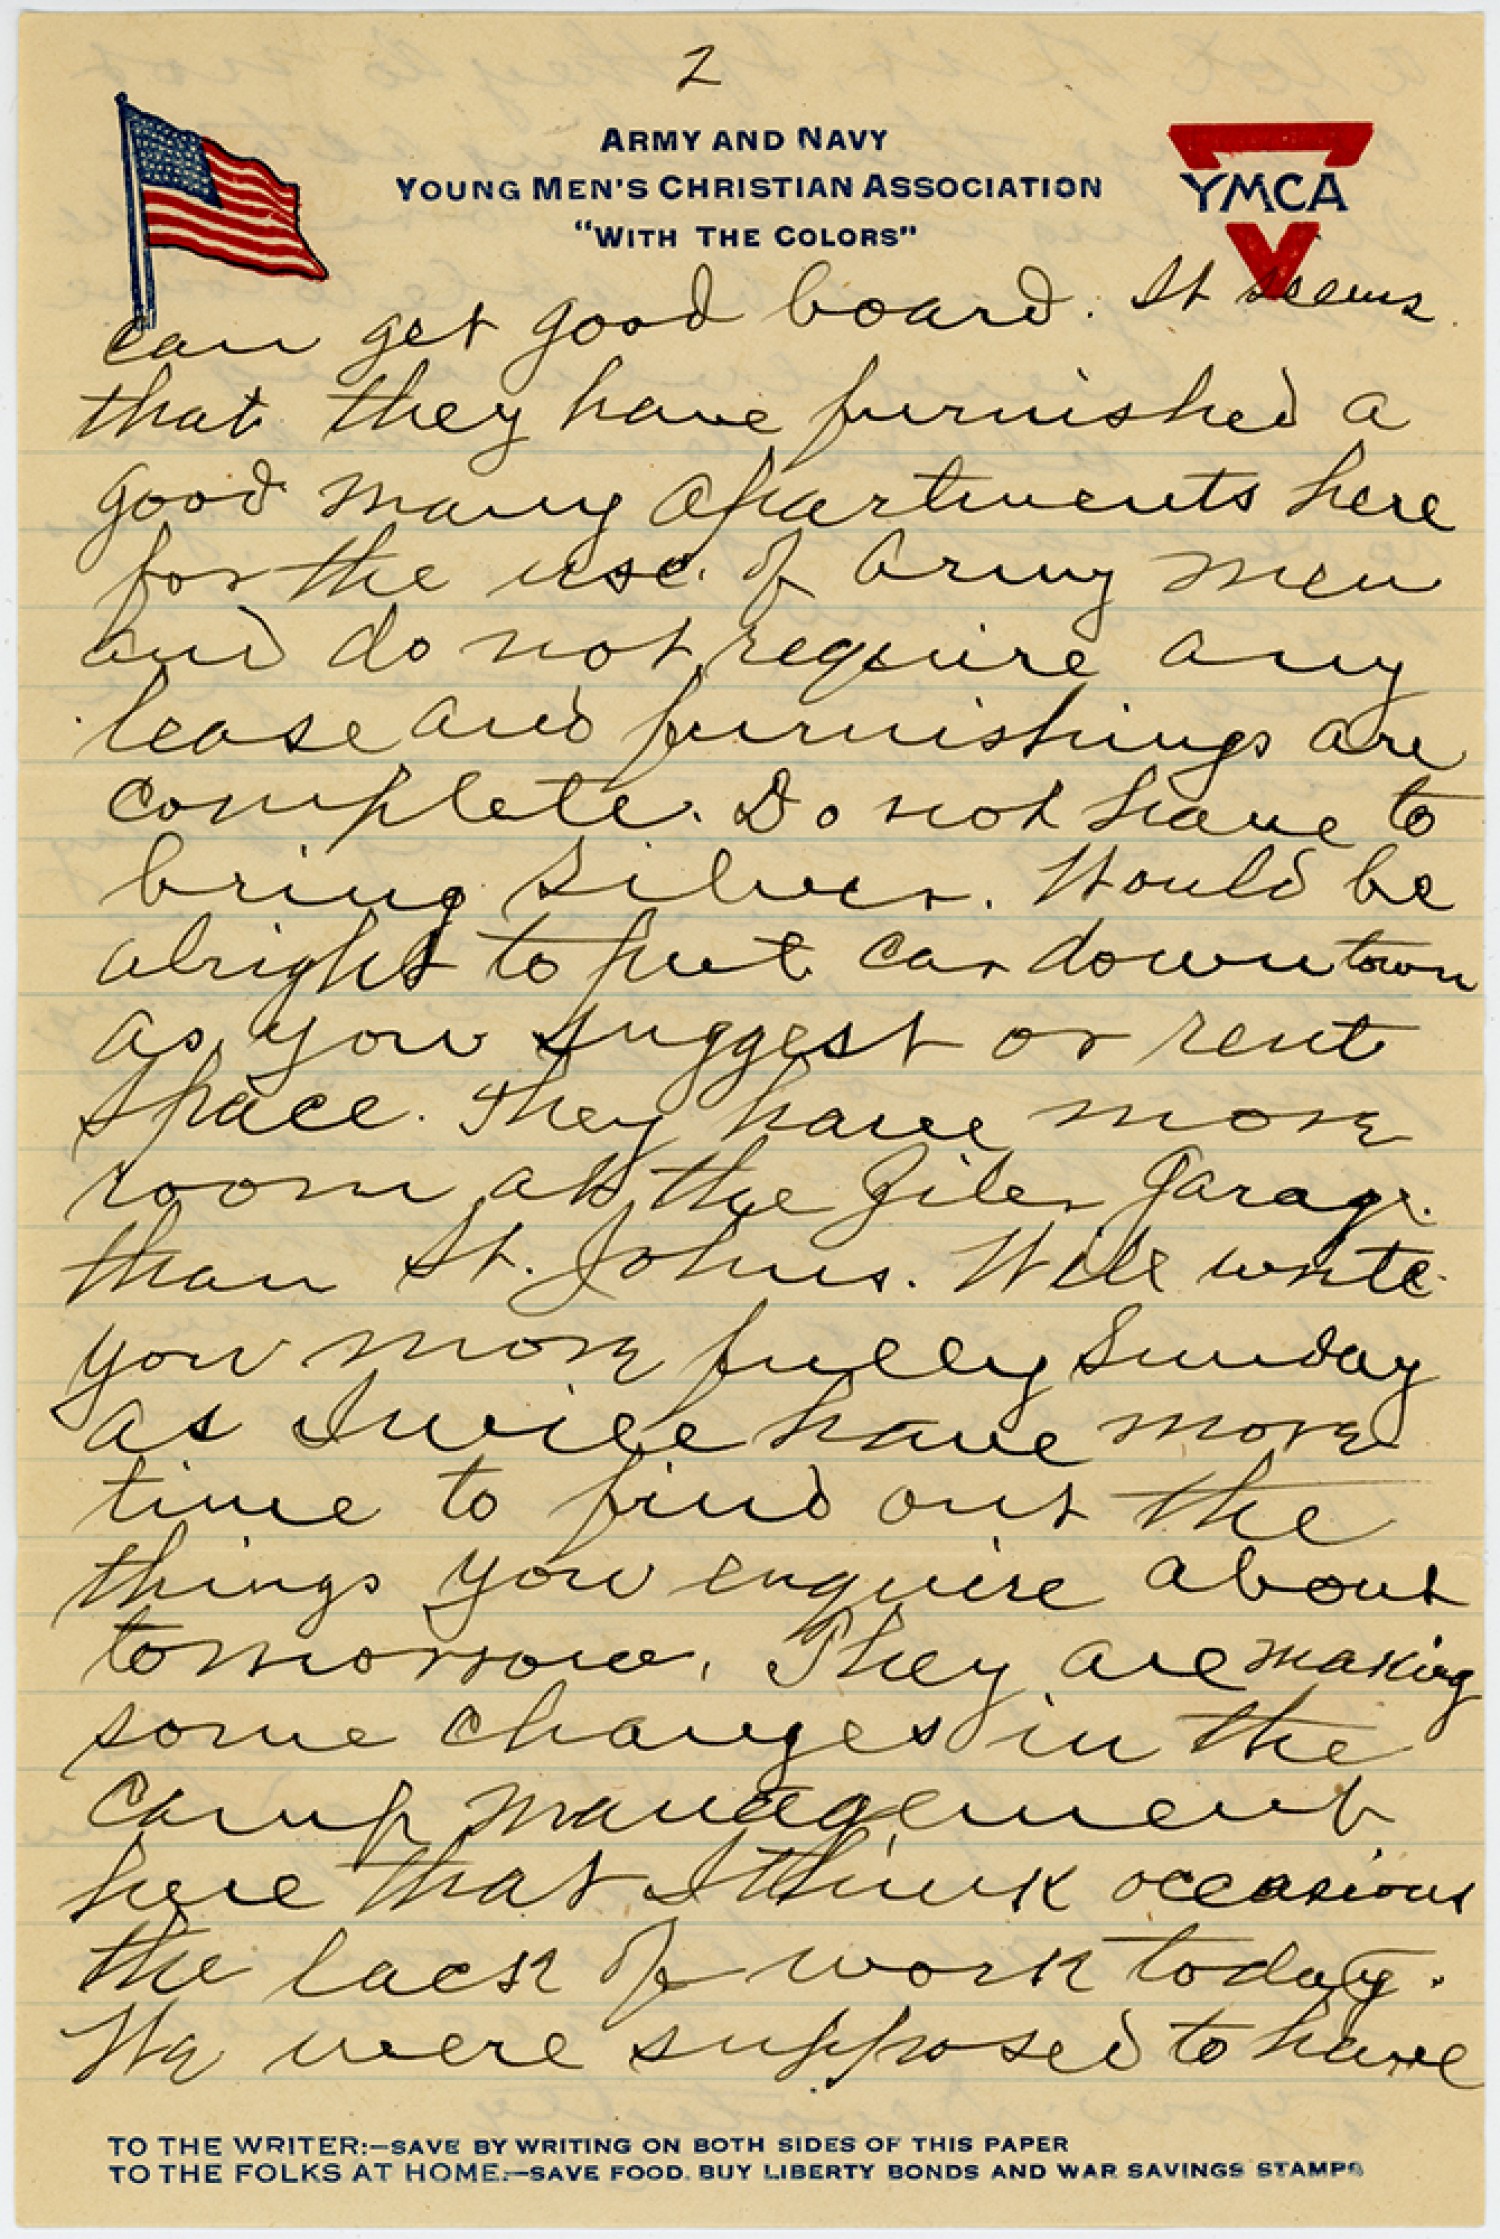 2
ARMY AND NAVY
YOUNG MEN'S CHRISTIAN ASSOCIATION
"WITH THE COLORS"
YMCA
can get good board. It seems
that they have furnished a
good many apartments here
for the use of Army men
and do not require any
lease and furnishings are
complete. Do not have to
bring silver. Would be
alright to put car downtown
as you suggest or rent
space. They have more
room at the Giles Garage
than St. Johns. Will write
you more fully Sunday
as I will have more
time to find out the
things you enquire about
tomorrow. They are making
some changes in the
camp management
here that I think occasions
the lack of work today.
We were supposed to have
TO THE WRITER:—SAVE BY WRITING ON BOTH SIDES OF THIS PAPER
TO THE FOLKS AT HOME:—SAVE FOOD, BUY LIBERTY BONDS AND WAR SAVINGS STAMPS